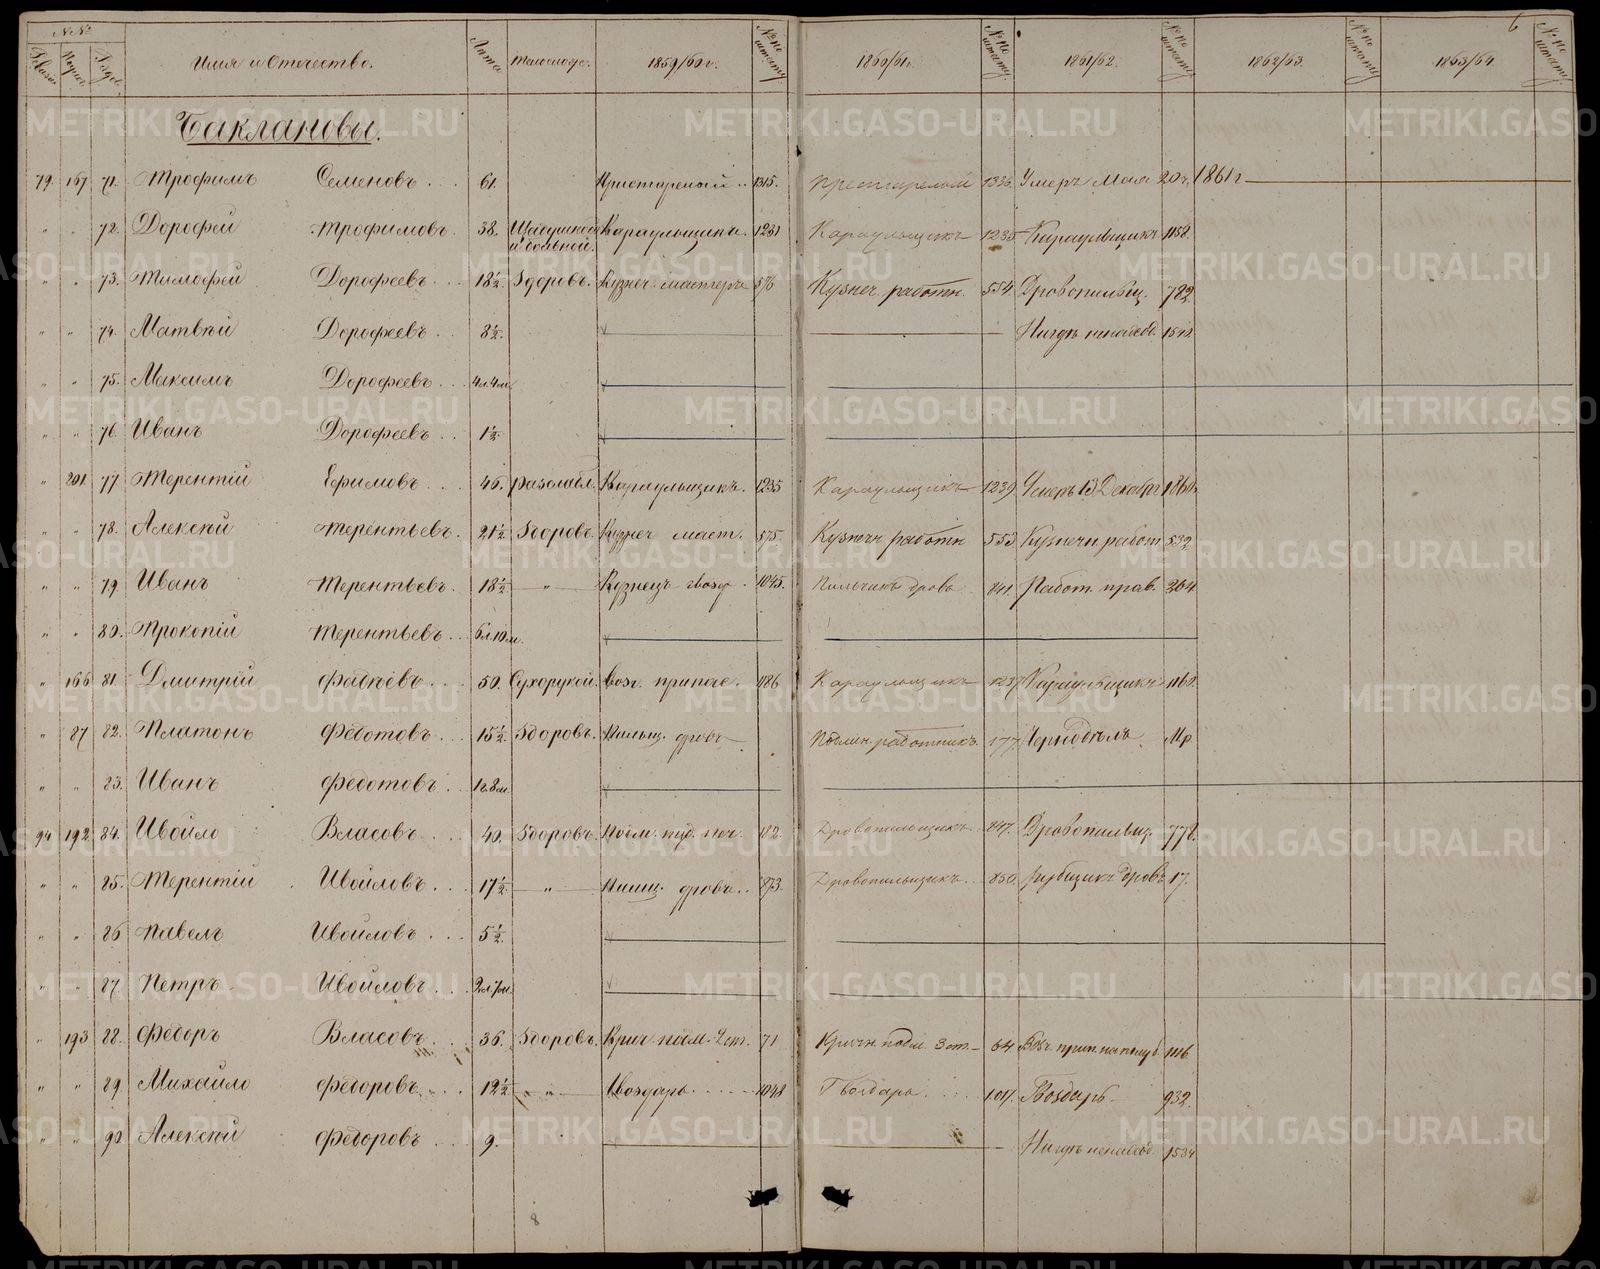 №№
Имя и Отчество. Лѣта Телослож. 1859/60 г. №№ по штату 1860/61 г. №№ по штату 1861/62. №№ по штату 1862/63. №№ по штату 1863/64. №№ по штату
6
Баклановы.
79. 167 71. Трофимъ Семеновъ 61. Престарелый 1315. Престарелой 1336. Умеръ Мая 20 ч. 1861 г
" " 72. Дорофей Трофимовъ. 38. Щедушной и больной. Караульщикъ. 1231 Караульщикъ 1235 Караульщикъ 1158.
" " 73. Тимофей Дорофеевъ 18½ Здоровъ. Кузнеч. мастеръ 576 Кузнеч. работн. 554. Дровопильщ. 782
" " 74. Матвѣй Дорофеевъ 8½. Нигдѣ ненаход. 1542
" " 75. Максимъ Дорофеевъ 4 л. 4 м.
" " 76. Иванъ Дорофеевъ 1½
" 201 77 Терентій Ефимовъ 46. разслабл. Караульщикъ. 1235 Караульщикъ 1239 Умеръ 13 Декабр 1860
" " 78. Алексѣй Терентьевъ. 21½ Здоровъ. Кузнеч маст. 575. Кузнечн работн 553. Кузнечн работ 532
" " 79. Иванъ Терентьевъ. 18½ " Кузнецъ гвозд 1045. Пильчикъ дровъ 841 Работ. прав. 364
" " 80. Прокопій Терентьевъ 6 л. 10 м.
" 166 81. Дмитрій Фатѣевъ 50. Сухорукой. воз. припасе. 1186 Караульщикъ 1237 Караульщикъ 1160.
" 87 82. Платонъ Федотовъ 15½ Здоровъ. Пильщ. дровъ Пудлин. работникъ. 177
" " 83. Иванъ Федотовъ 1 г. 8 м.
94 192 84. Ивойло Власовъ 40. Здоровъ Подм. пуд. печ. 182. Дровопильщикъ. 847. Дровопильщ. 778.
" " 85. Терентій Ивойловъ 17½ " Пильщ. дровъ. 873. Дровопильщикъ. 850. Рубщикъ дровъ 17.
" " 86 Павелъ Ивойловъ 5½
" " 87. Петръ Ивойловъ 2 л. 7 м.
" 193 88. Федоръ Власовъ 36. Здоровъ. Крич. подм. 2 ст. 71 Кричн. подм. 3 ст. 64 1116
" " 89. Михайло Федоровъ 12½ " Гвоздарь 1048 Гвоздарь 1017. Гвоздарь 932
" " 90 Алексѣй Федоровъ 9. Нигдѣ ненаход. 1534
8
METRIKI.GASO-URAL.RU